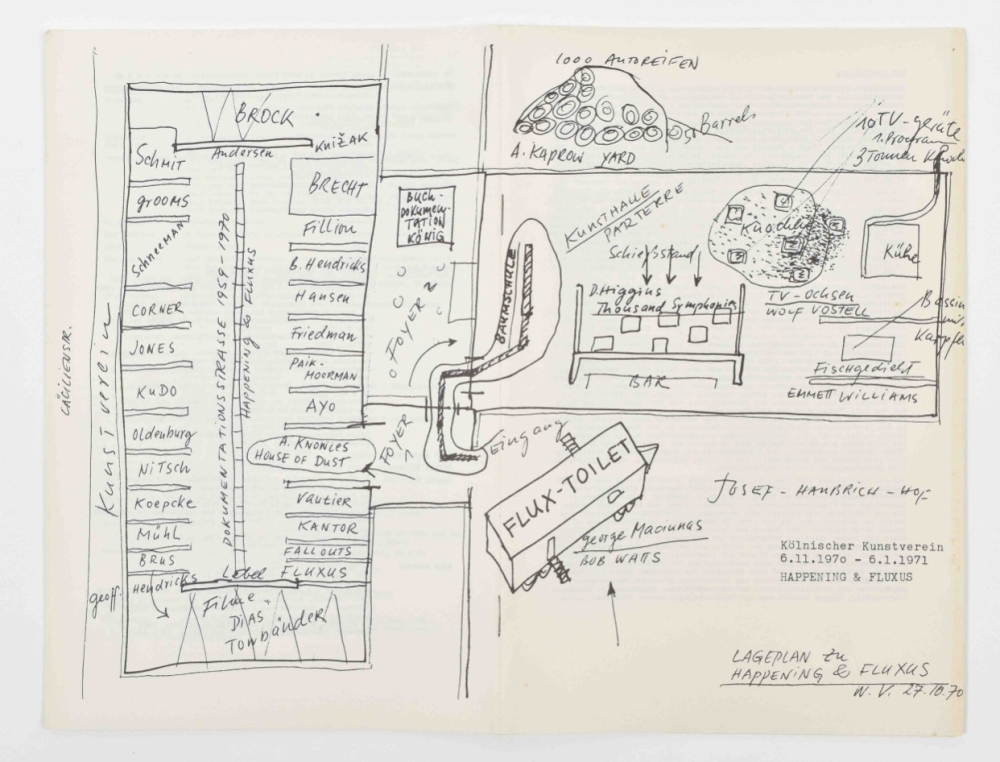 1000 AUTOREIFEN
Barrels
A. KAPROW YARD
10 TV-geräte
1. Program
3 Tonnen
BROCK
Andersen
KNIŽAK
Schmit
grooms
Schneemann
CORNER
JONES
KuDO
Oldenburg
NiTSch
Koepcke
Mühl
BRUS
Hendricks
geoff.
CÄCILIENSTR.
Kunstverein
DOKUMENTATIONSSTRASSE 1959-1970
HAPPENING & FLUXUS
BRECHT
Fillion
B. Hendricks
Hansen
Friedman
PAIK-
MOORMAN
AYO
A. KNOWLES
HOUSE OF DUST
Vautier
KANTOR
FALLOUTS
FLUXUS
Lebel
Filme
DiAS
Tonbänder
BUCH-
DOKUMEN-
TATION
KÖNIG
FOYER
FOYER
BAUMSCHULE
Eingang
KUNSTHALLE
PARTERRE
Schießstand
D. Higgins
Thousand Symphonies
BAR
Knochen
TV-OCHSEN
WOLF VOSTELL
Kühe
Bassin
mit
Fischgedicht
EMMETT WILLIAMS
FLUX-TOILET
george Maciunas
BOB WATTS
JOSEF-HAUBRICH-HOF
Kölnischer Kunstverein
6.11.1970 - 6.1.1971
HAPPENING & FLUXUS
LAGEPLAN zu
HAPPENING & FLUXUS
W. V. 27.10.70